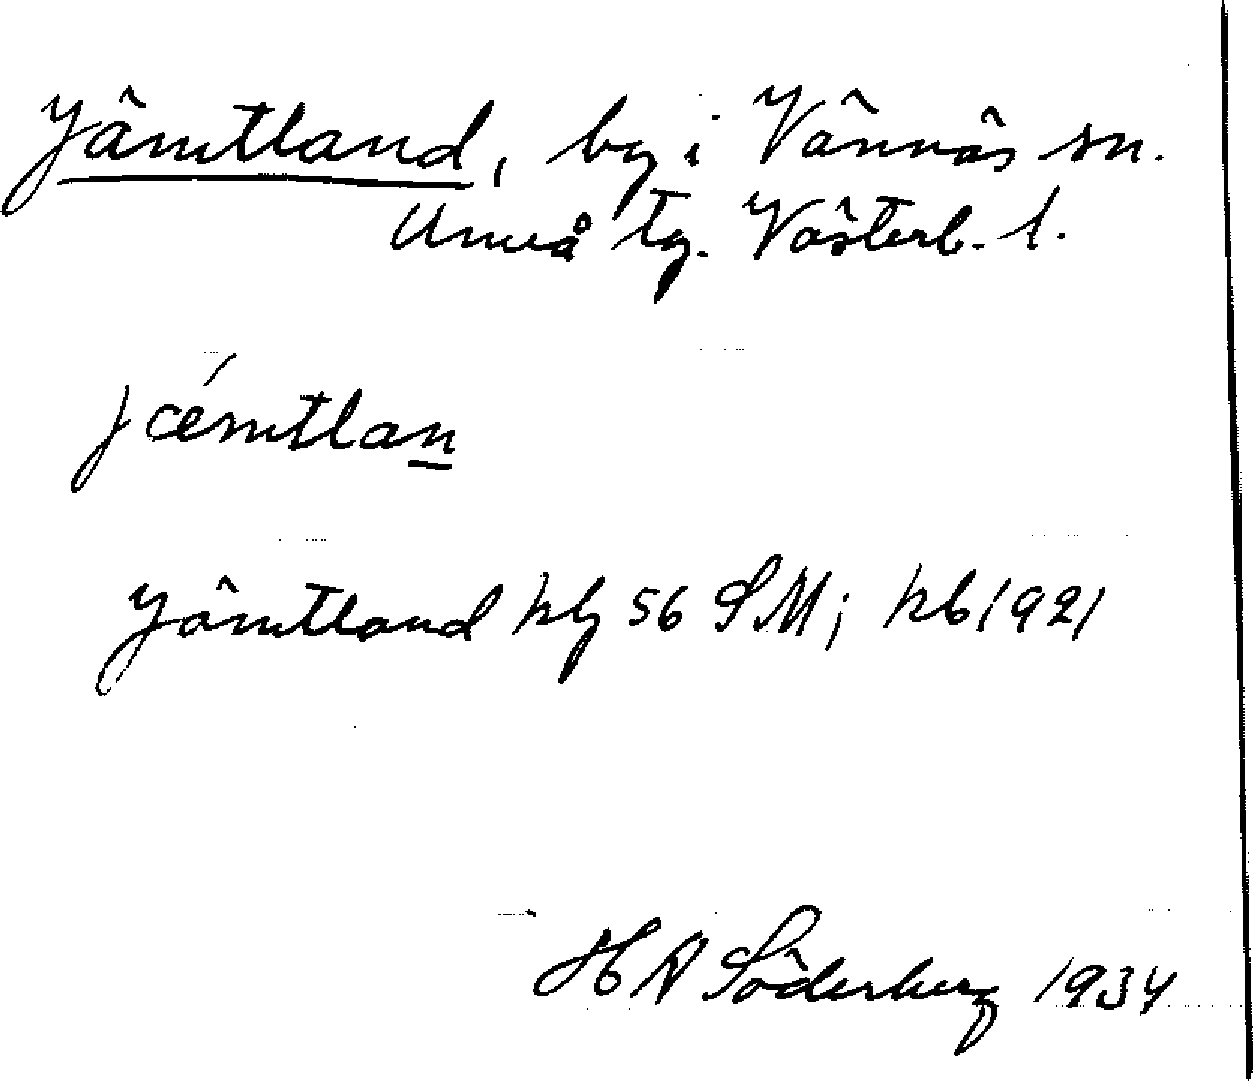 Jämtland, by i Vännäs sn.
Umeå tg. Västerb. l.
jǽmtlan
Jämtland kby 56 SM; kb 1921
H A Söderberg 1934